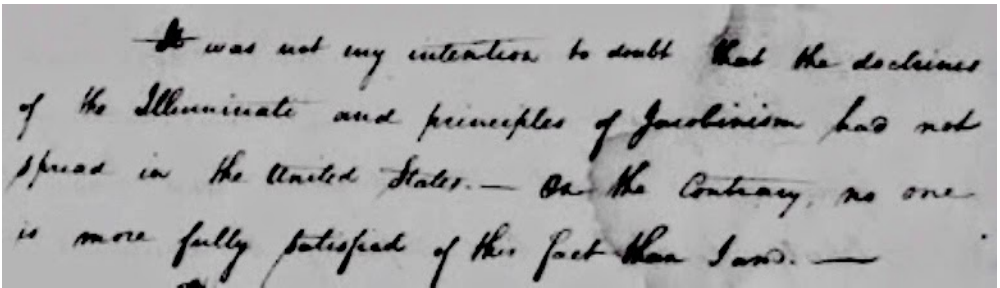 It was not my intention to doubt that the doctrines
of the Illuminate and principles of Jacobinism had not
spread in the United States.— On the Contrary, no one
is more fully satisfied of this fact than I am.—